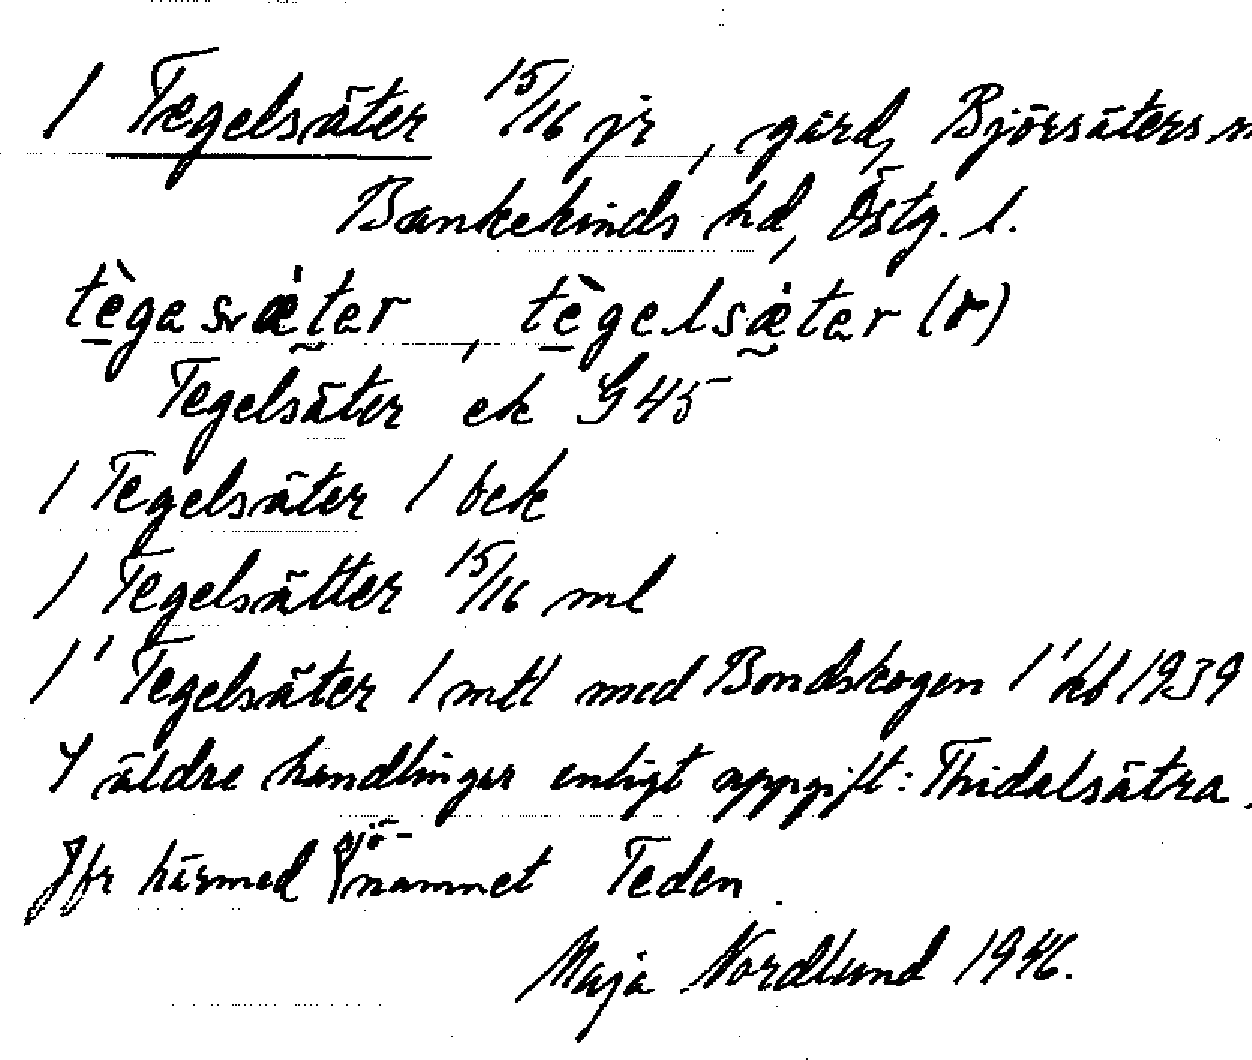 / Tegelsäter 15/16 jr, gård, Björsäters
Bankekinds hd, Östg. l.
tègasæ̀ter, tègelsæ̀ter (r)
Tegelsäter ek G 45
/ Tegelsäter / bek
/ Tegelsätter 15/16 ml
/' Tegelsäter 1 mtl med Bondskogen /' kb 1939
Y äldre handlingar enligt uppgift: Thidalsätra.
Jfr härmed sjö-namnet Teden.
Maja Nordlund 1946.